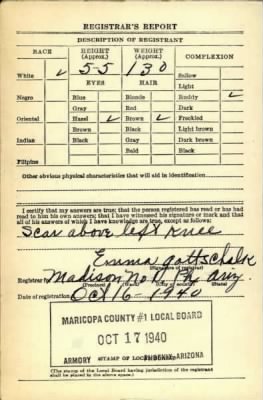 REGISTRAR'S REPORT
DESCRIPTION OF REGISTRANT
RACE HEIGHT (Approx.) WEIGHT (Approx.) COMPLEXION
White ✓ 5-5 130 Sallow
EYES HAIR Light
Negro Blue Blonde Ruddy ✓
Gray Red Dark
Oriental Hazel ✓ Brown ✓ Freckled
Brown Black Light brown
Indian Black Gray Dark brown
Bald Black
Filipino
Other obvious physical characteristics that will aid in identification
I certify that my answers are true; that the person registered has read or has had
read to him his own answers; that I have witnessed his signature or mark and that
all of his answers of which I have knowledge are true, except as follows:
Scar above left knee
Emma Gottschalk
(Signature of registrar)
Registrar for Madison No 1 Ph Ariz.
(Precinct) (State)
Date of registration Oct 16 - 1940
MARICOPA COUNTY #1 LOCAL BOARD
OCT 17 1940
ARMORY PHOENIX, ARIZONA
(STAMP OF LOCAL BOARD)
(The stamp of the Local Board having jurisdiction of the registrant
shall be placed in the above space.)